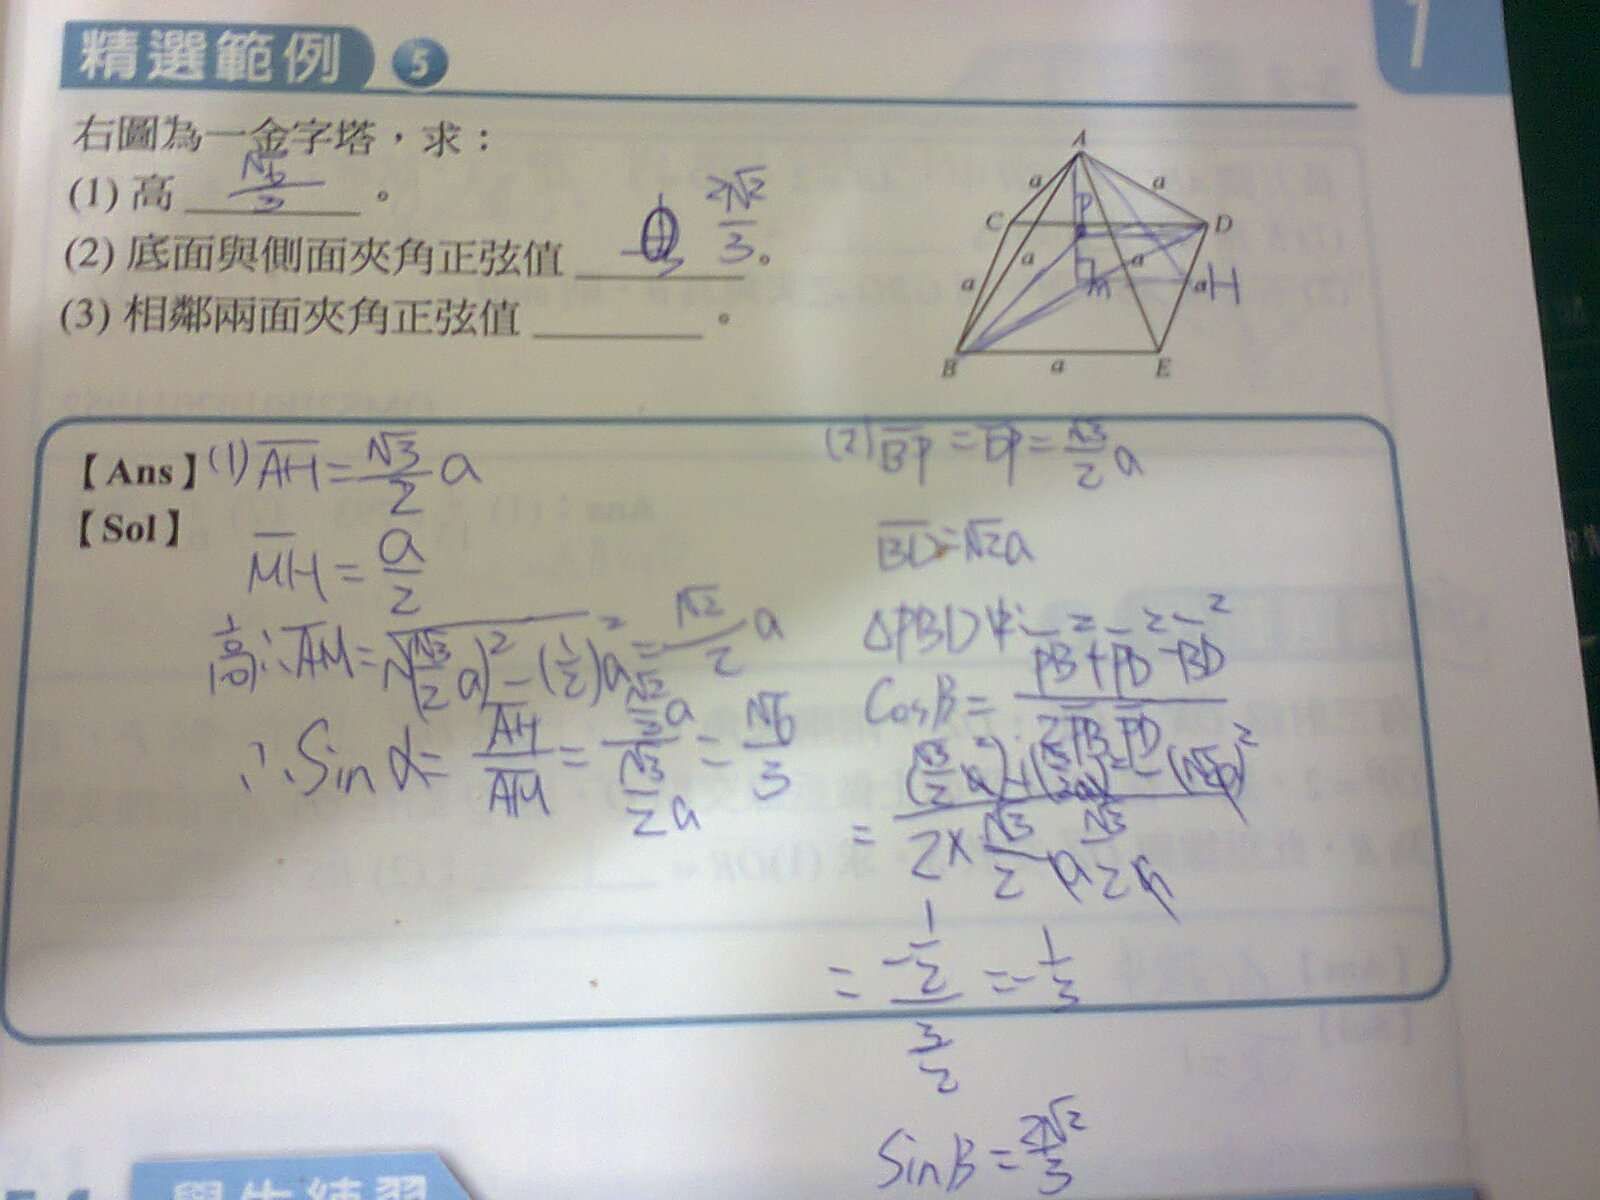 精選範例 5
1
右圖為一金字塔，求：
(1) 高 √6/3 。
(2) 底面與側面夾角正弦值 2√2/3 。
(3) 相鄰兩面夾角正弦值 ______ 。
A
a a
P
C D
a a
a M a H
B a E
【Ans】(1) AH = √3/2 a
【Sol】
MH = a/2
高∴AM = √(√3/2 a)² - (1/2)a² = √2/2 a
∴ Sin α = AH/AM = √2/2 a / √3/2 a = √6/3
(2) BP = DP = √3/2 a
BD = √2a
△PBD中: PB² + PD² - BD²
CosB = 2PB PD
= (√3/2 a)² + (√3/2 a)² - (√2a)² / 2×√3/2 a √3/2 a
= -1/2 / 3/2 = -1/3
SinB = 2√2/3
學生練習